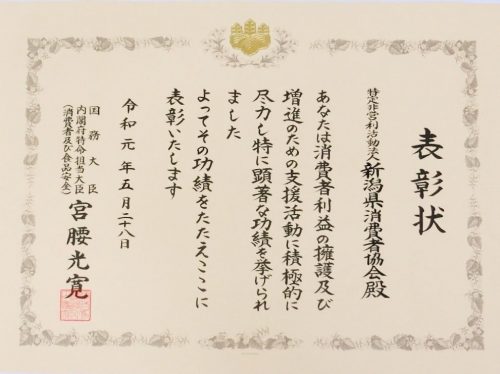 表彰状
特定非営利活動法人 新潟県消費者協会殿
あなたは消費者利益の擁護及び
増進のための支援活動に積極的に
尽力し特に顕著な功績を挙げられ
ました
よってその功績をたたえここに
表彰いたします
令和元年五月二十八日
国務大臣
内閣府特命担当大臣
(消費者及び食品安全)
宮腰光寛